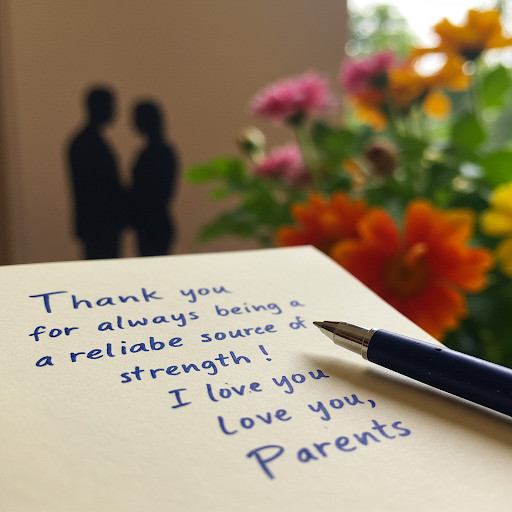 Thank you
for always being a
a reliabe source of
strength!
I love you
love you,
Parents